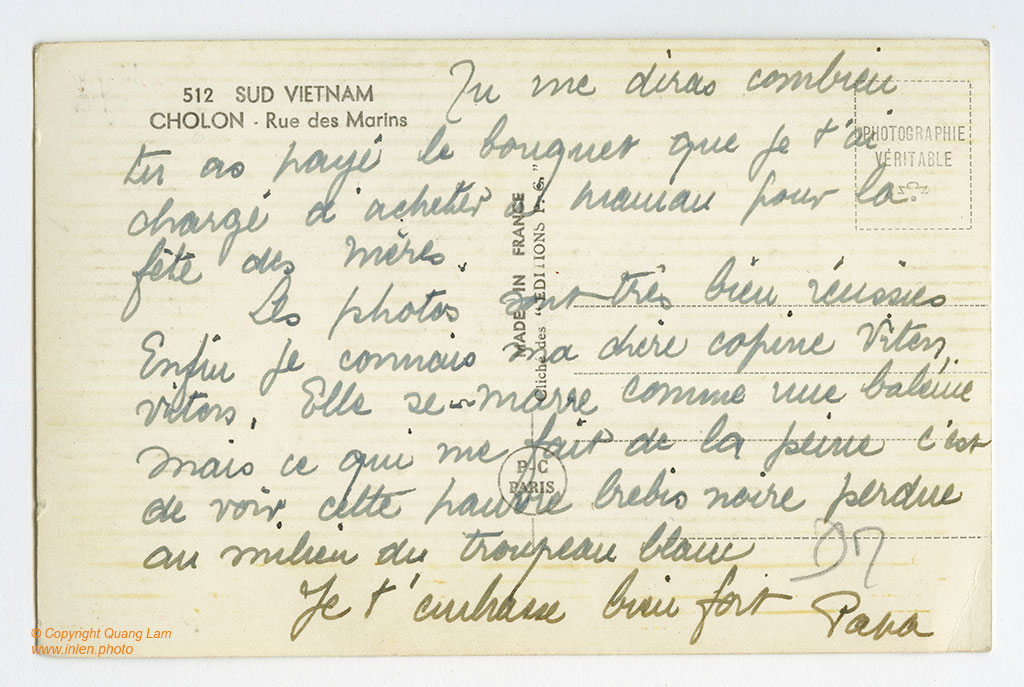 512 SUD VIETNAM
CHOLON - Rue des Marins
PHOTOGRAPHIE
VÉRITABLE
Tu me diras combien
tu as payé le bouquet que je t'ai
chargé d'acheter à maman pour la
fête des mères.
Les photos sont très bien réussies
Enfin je connais ta chère copine Viton
vitons. Elle se marre comme une baleine
mais ce qui me fait de la peine c'est
de voir cette pauvre brebis noire perdue
au milieu du troupeau blanc
Je t'embrasse bien fort
Papa
MADE IN FRANCE
Cliché des "EDITIONS P.-C."
P-C
PARIS
© Copyright Quang Lam
www.inlen.photo